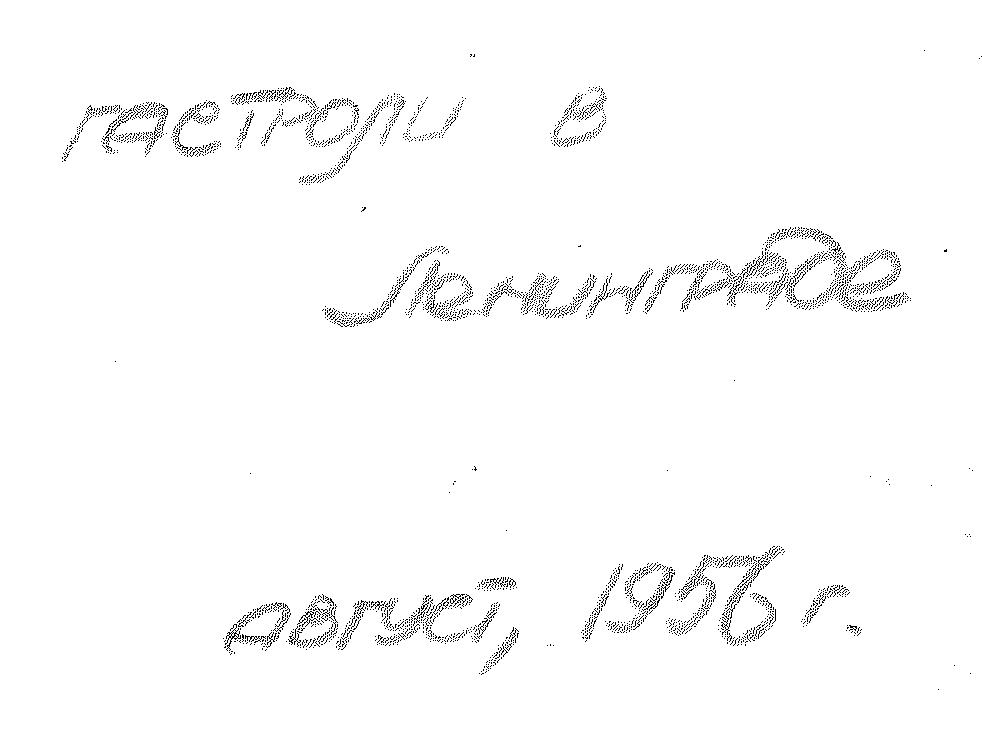 гастроли в
Ленинграде
август, 1956 г.